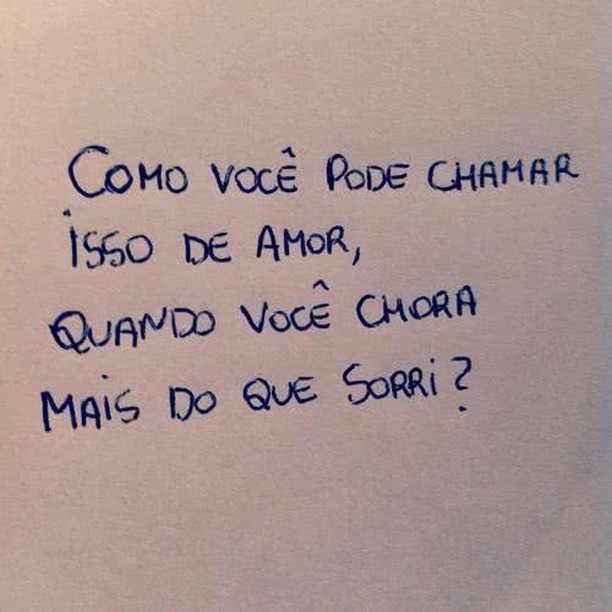 COMO VOCÊ PODE CHAMAR
ISSO DE AMOR,
QUANDO VOCÊ CHORA
MAIS DO QUE SORRI?